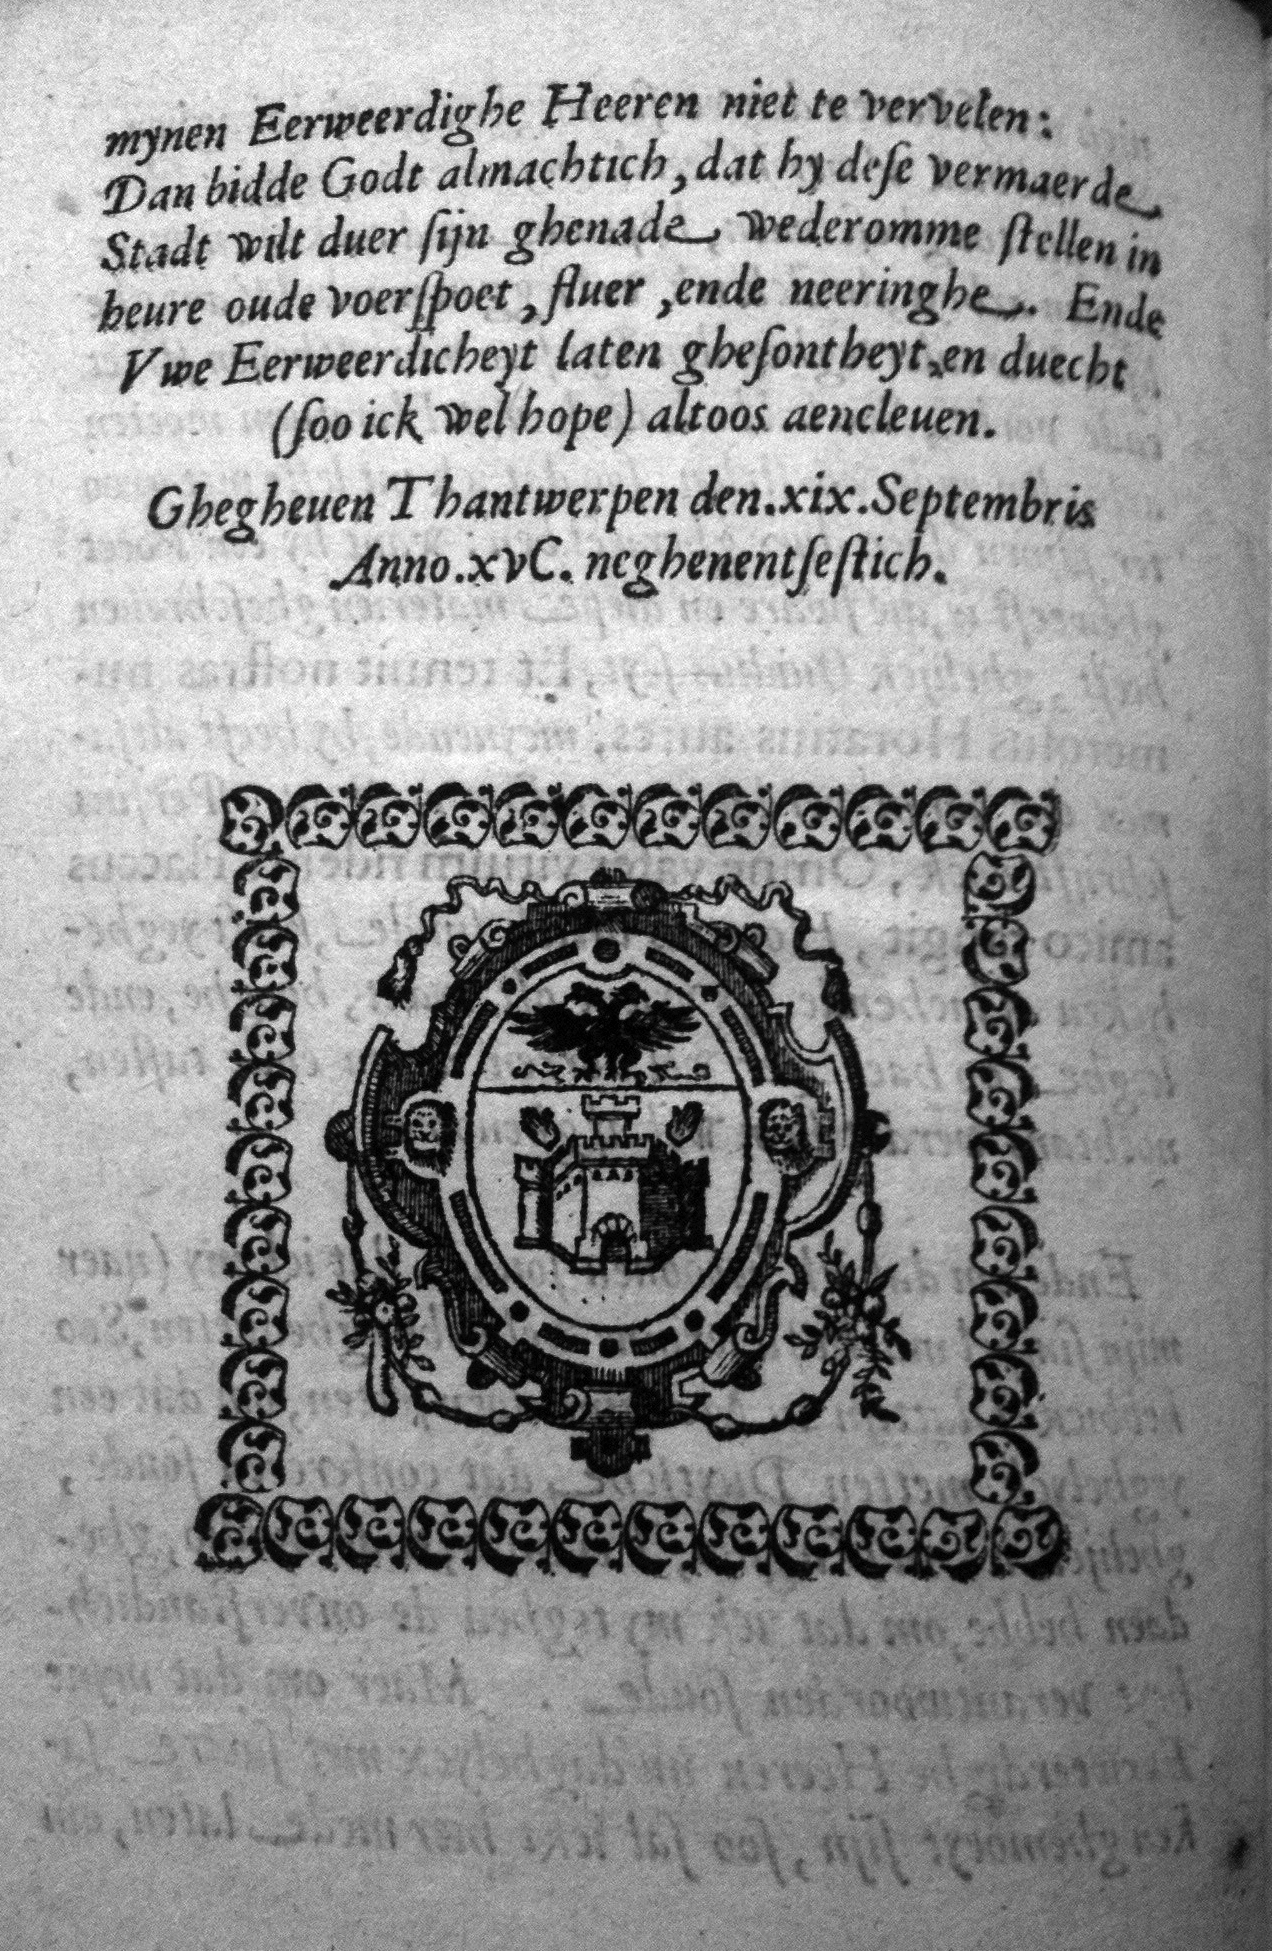 mynen Eerweerdighe Heeren niet te vervelen:
Dan bidde Godt almachtich, dat hy dese vermaerde
Stadt wilt duer sijn ghenade wederomme stellen in
heure oude voerspoet, fluer, ende neeringhe. Ende
Vwe Eerweerdicheyt laten ghesontheyt, en duecht
(soo ick wel hope) altoos aencleuen.
Ghegheuen Thantwerpen den.xix.Septembris
Anno.xvC. neghenentsestich.